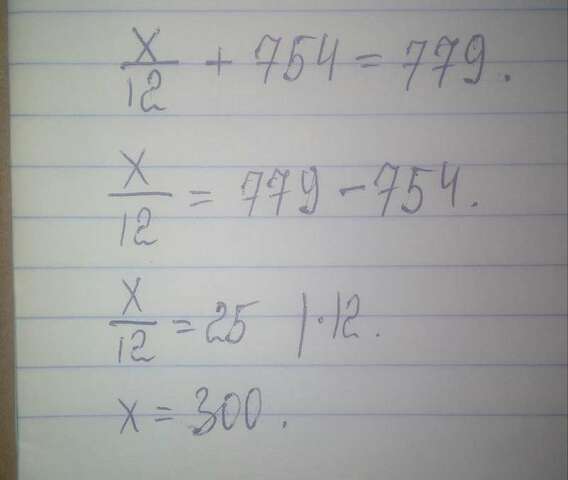 x/12 + 754 = 779.
x/12 = 779 - 754.
x/12 = 25 |·12.
x = 300.